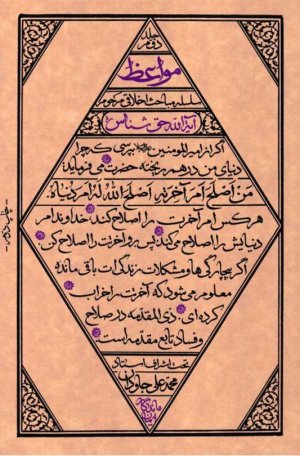 جلد
دوم
مواعظ
سلسله مباحث اخلاقی مرحوم
آیة الله حق شناس
اگر از امیرالمومنین بپرسی که چرا
دنیای من درهم ریخته حضرت می فرماید:
مَنْ أصْلَحَ أمْرَ آخِرَتِهِ أصْلَحَ اللّهُ لَهُ أمْرَ دُنْیاهُ.
هر کس امر آخرت را اصلاح کند خداوند امر
دنیایش را اصلاح می کند پس برو آخرتت را اصلاح کن.
اگر بیچارگی ها و مشکلات زندگی ات باقی مانده
معلوم می شود که آخرتت را خراب
کرده ای. ذی المقدمه در صلاح
و فساد تابع مقدمه است
تحت اشراف استاد
محمد علی جاودان
- چاپ دوم -